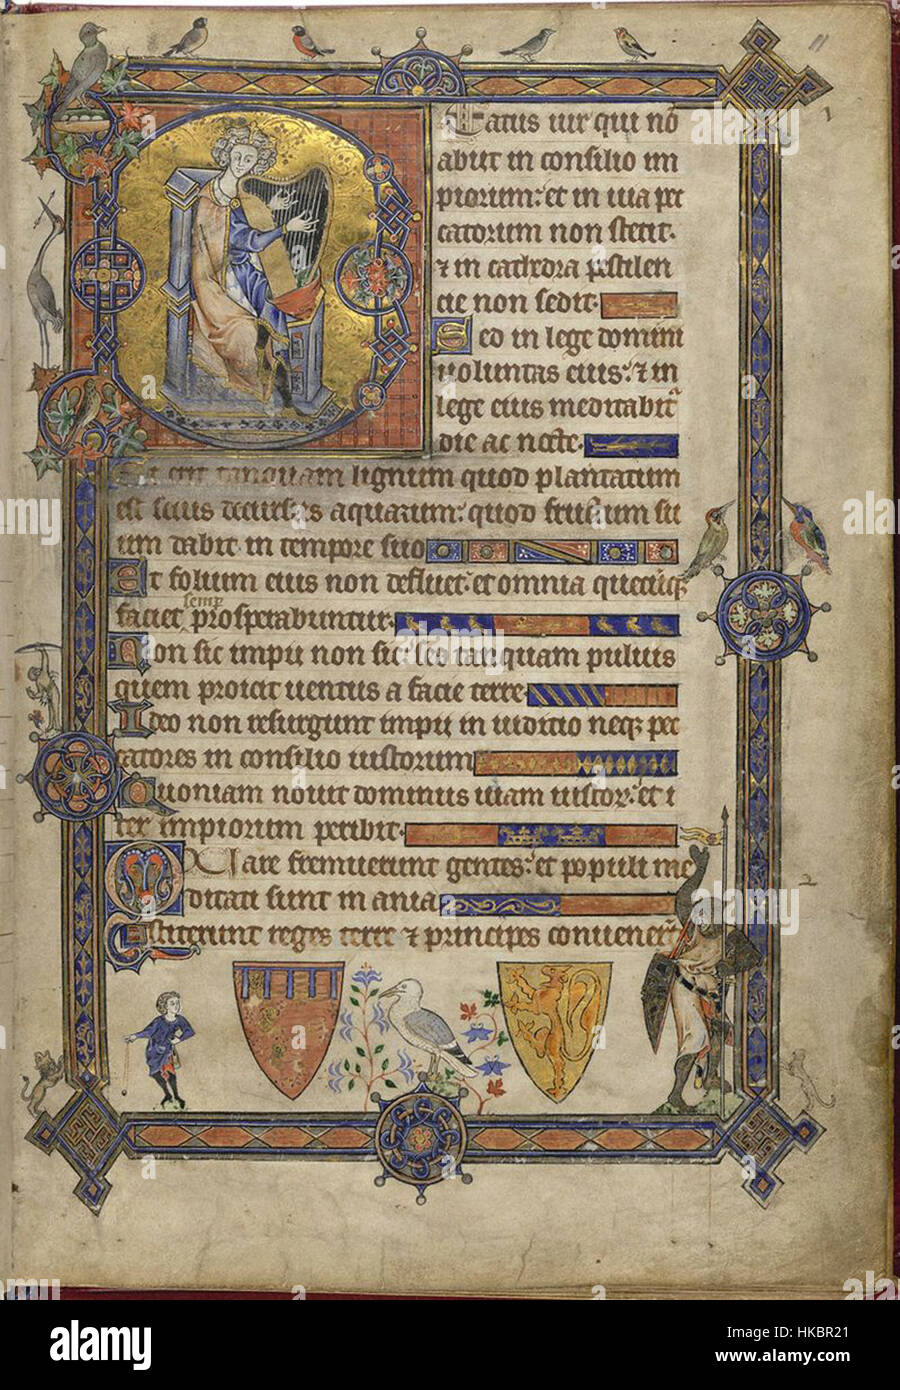 11
1
Eatus uir qui nō
abiit in consilio im
piorum: et in uia pec
catorum non stetit.
& in cathedra pestilen
cie non sedit.
Sed in lege domini
uoluntas eius: & in
lege eius meditabit~
die ac nocte.
Et erit tanquam lignum quod plantatum
est secus decursus aquarum: quod fructum su
um dabit in tempore suo
Et folium eius non defluet: et omnia quecūq;
semp
faciet prosperabuntur.
Non sic impii non sic: sed tanquam puluis
quem proicit uentus a facie terre
Ideo non resurgunt impii in iudicio neq; pec
catores in consilio iustorum
Quoniam nouit dominus uiam iustor: et i
ter impiorum peribit.
2
Quare fremuerunt gentes: et populi me
ditati sunt inania
Astiterunt reges terre & principes conuener~
alamy
Image ID: HKBR21
www.alamy.com